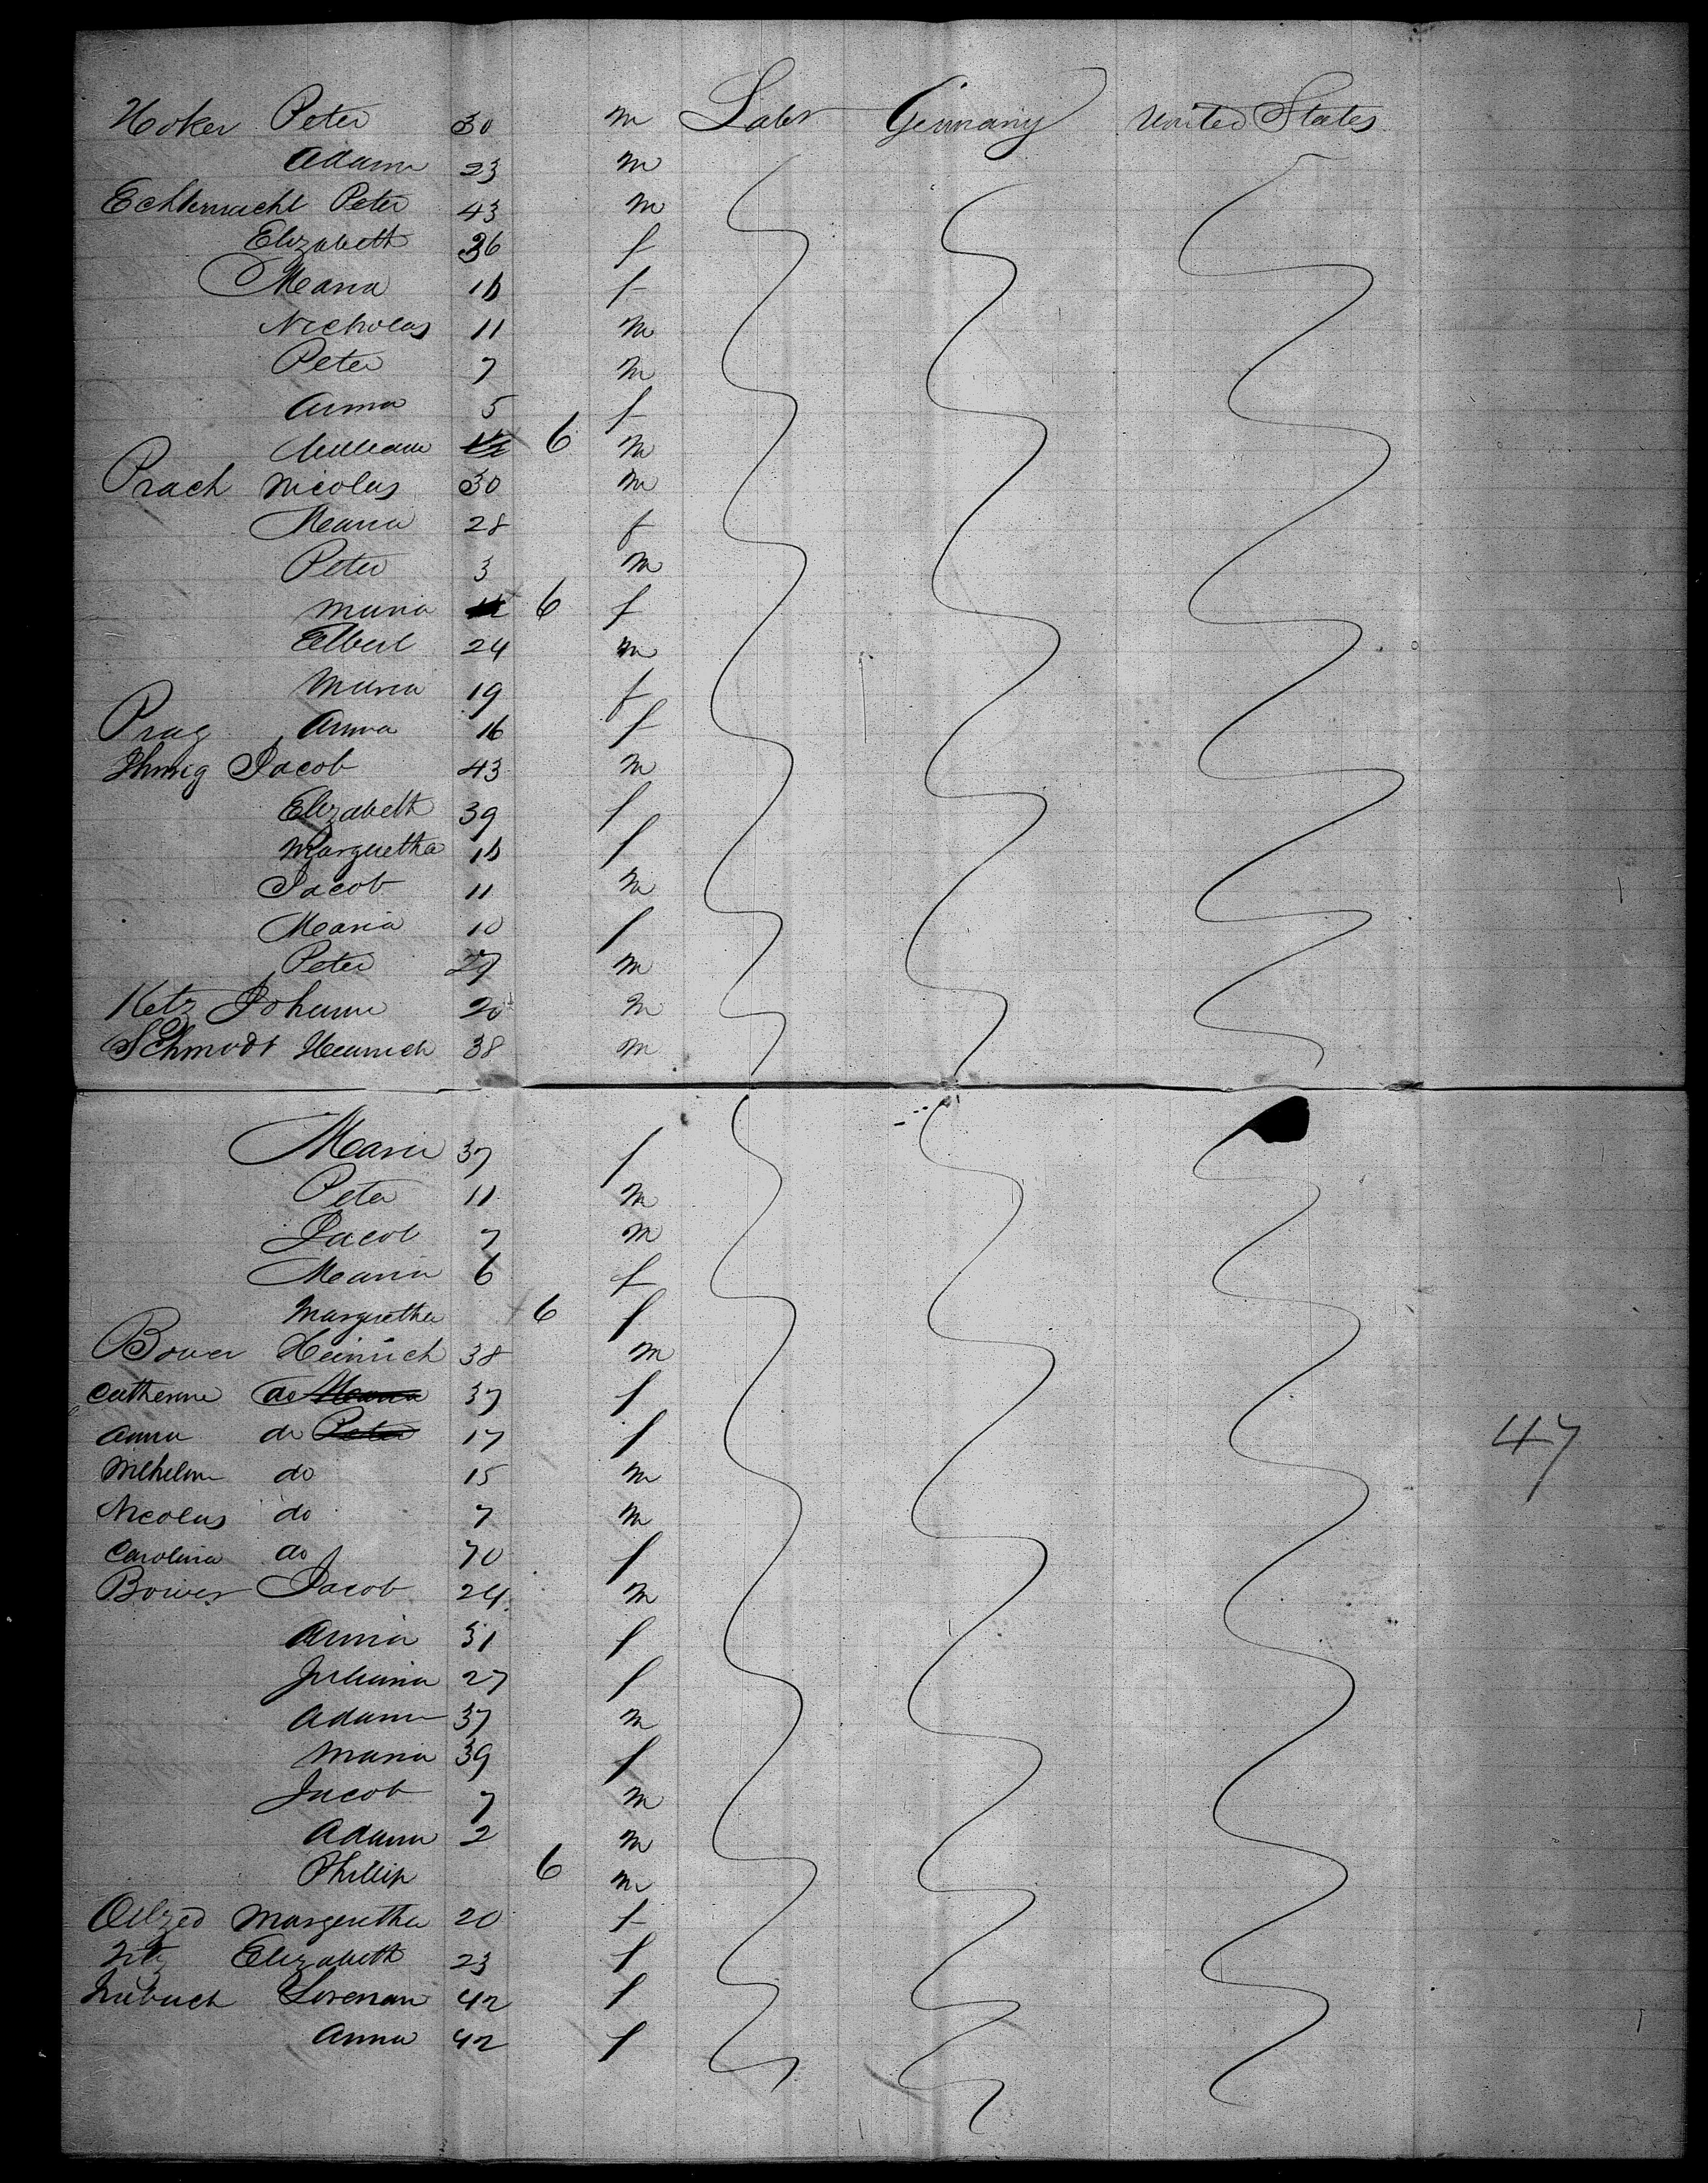 Hoker Peter 30 m Labr Germany United States
Adam 23 m
Echternacht Peter 43 m
Elizabeth 36 f
Maria 16 f
Nicholas 11 m
Peter 7 m
Anna 5 f
William 6 m
Prach Nicolas 30 m
Maria 28 f
Peter 3 m
Maria 6 f
Elbert 24 m
Maria 19 f
Prag Anna 16 f
Jacob 43 m
Elizabeth 39 f
Margretha 16 f
Jacob 11 m
Maria 10 f
Peter 27 m
Ketz Johann 20 m
Schmodt Heinrich 38 m
Maria 37 f
Peter 11 m
Jacob 7 m
Maria 6 f
Margretha 6 f
Bower Heinrich 38 m
Catherine do Maria 37 f
Anna do Peter 17 f
Wilhelm do 15 m
Nicolas do 7 m
Carolina do 70 f
Bower Jacob 24 m
Anna 31 f
Juliana 27 f
Adam 37 m
Maria 39 f
Jacob 7 m
Adam 2 m
Phillip 6 m
Margretha 20 f
Elizabeth 23 f
42 f
Anna 42 f
47